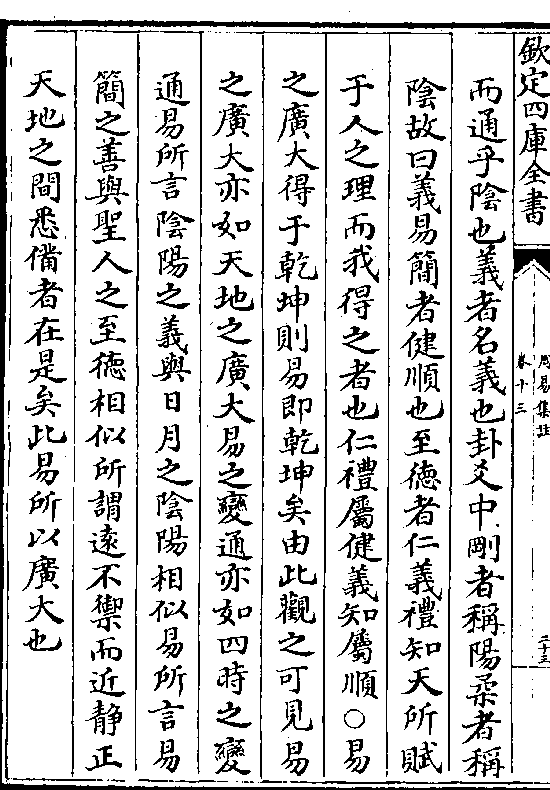 欽定四庫全書
周易集註
卷十三
二十三
而通乎陰也義者名義也卦爻中剛者稱陽柔者稱
陰故曰義易簡者健順也至德者仁義禮知天所賦
于人之理而我得之者也仁禮屬健義知屬順○易
之廣大得于乾坤則易即乾坤矣由此觀之可見易
之廣大亦如天地之廣大易之變通亦如四時之變
通易所言陰陽之義與日月之陰陽相似易所言易
簡之善與聖人之至德相似所謂遠不禦而近靜正
天地之間悉備者在是矣此易所以廣大也